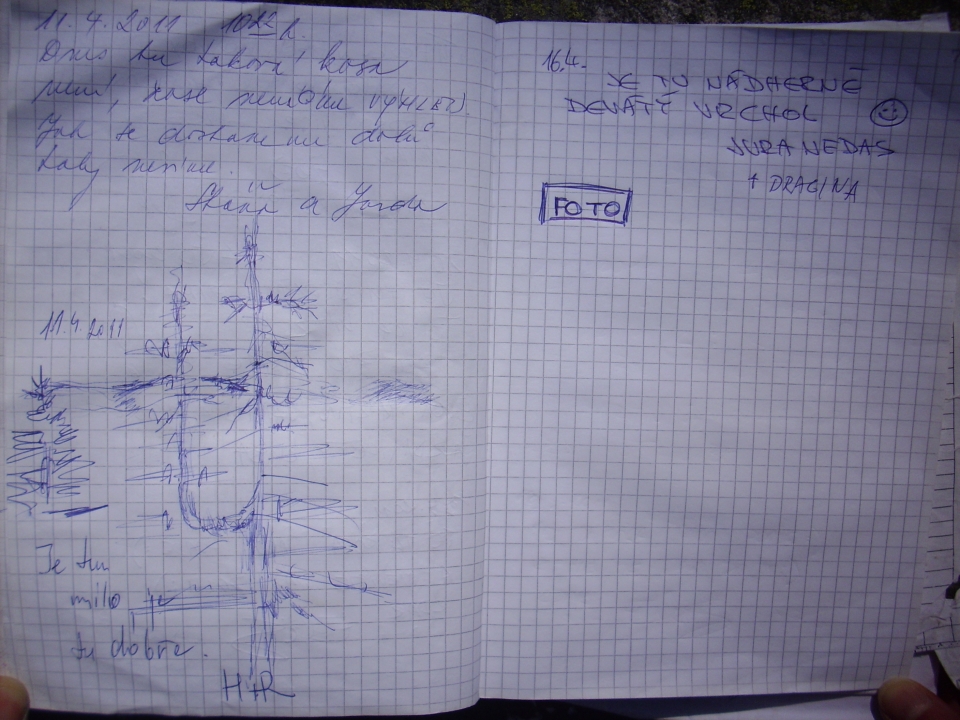 11.4.2011 10:12 h.
Dnes tu taková kosa
není, zase nemůžu
Jak se dostaneme dolů
taky nevíme.
a Jarda
11.4.2011
Je tu
milo je
tu dobře.
H+R
16.4.
JE TU NÁDHERNĚ
DEVÁTÝ VRCHOL
JURA NEDAS
+ DRAGINA
FOTO